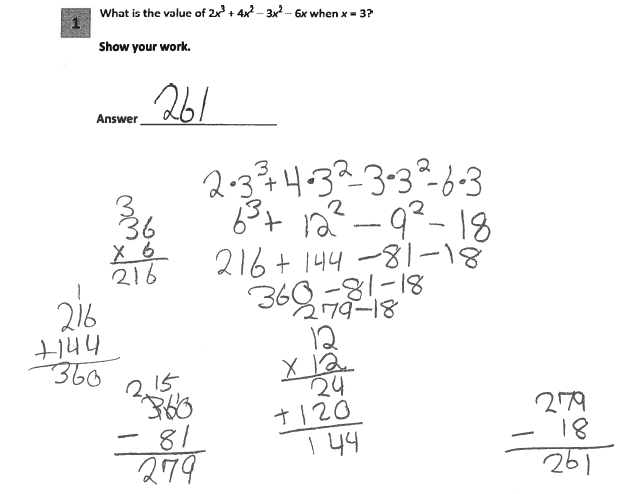 1
What is the value of 2x³ + 4x² – 3x² – 6x when x = 3?
Show your work.
Answer 261
2·3³+4·3²–3·3²–6·3
6³+ 12² – 9² – 18
216+ 144 –81–18
360 –81–18
279–18
3
36
x 6
216
1
216
+144
360
2 15
360
– 81
279
12
x 12
24
+120
144
279
– 18
261